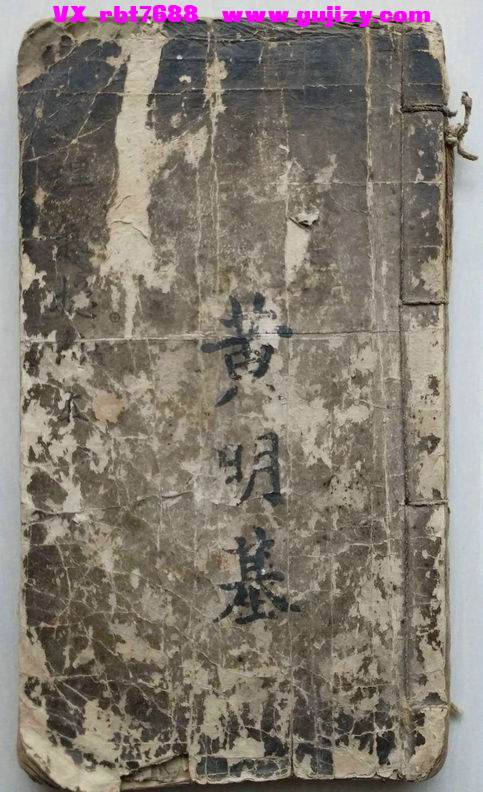 VX rbt7688 www.gujizy.com
黄明基